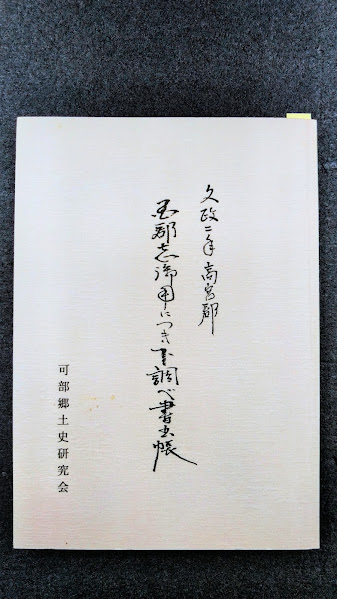 文政二年高宮郡
国郡志御用につき下調べ書出帳
可部郷土史研究会